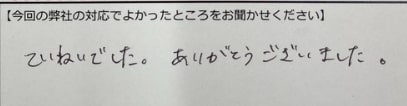 【今回の弊社の対応でよかったところをお聞かせください】
ていねいでした。ありがとうございました。